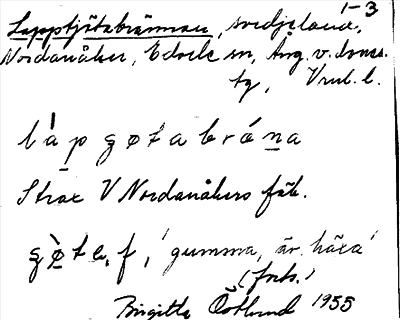 1-3
Lapptjötabrännan, svedjeland,
Nordanåker, Edsele sn, Ång. v. doms.
tg, Vrul. l.
l a p ʒ ø t a b r a n a
Strax V Nordanåkers fäb.
f, 'gumma, är. häxa'
(forts.)
Birgitta Östlund 1955